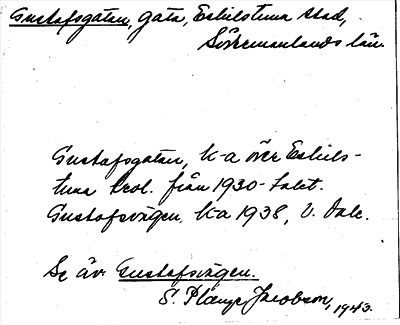 Gustafsgatan, gata, Eskilstuna stad,
Södermanlands län.
Gustafsgatan, k-a över Eskils-
tuna trol. från 1930-talet.
Gustafsvägen, k-a 1938, V. dale.
Se äv. Gustafsvägen.
S. Jacobson, 1943.